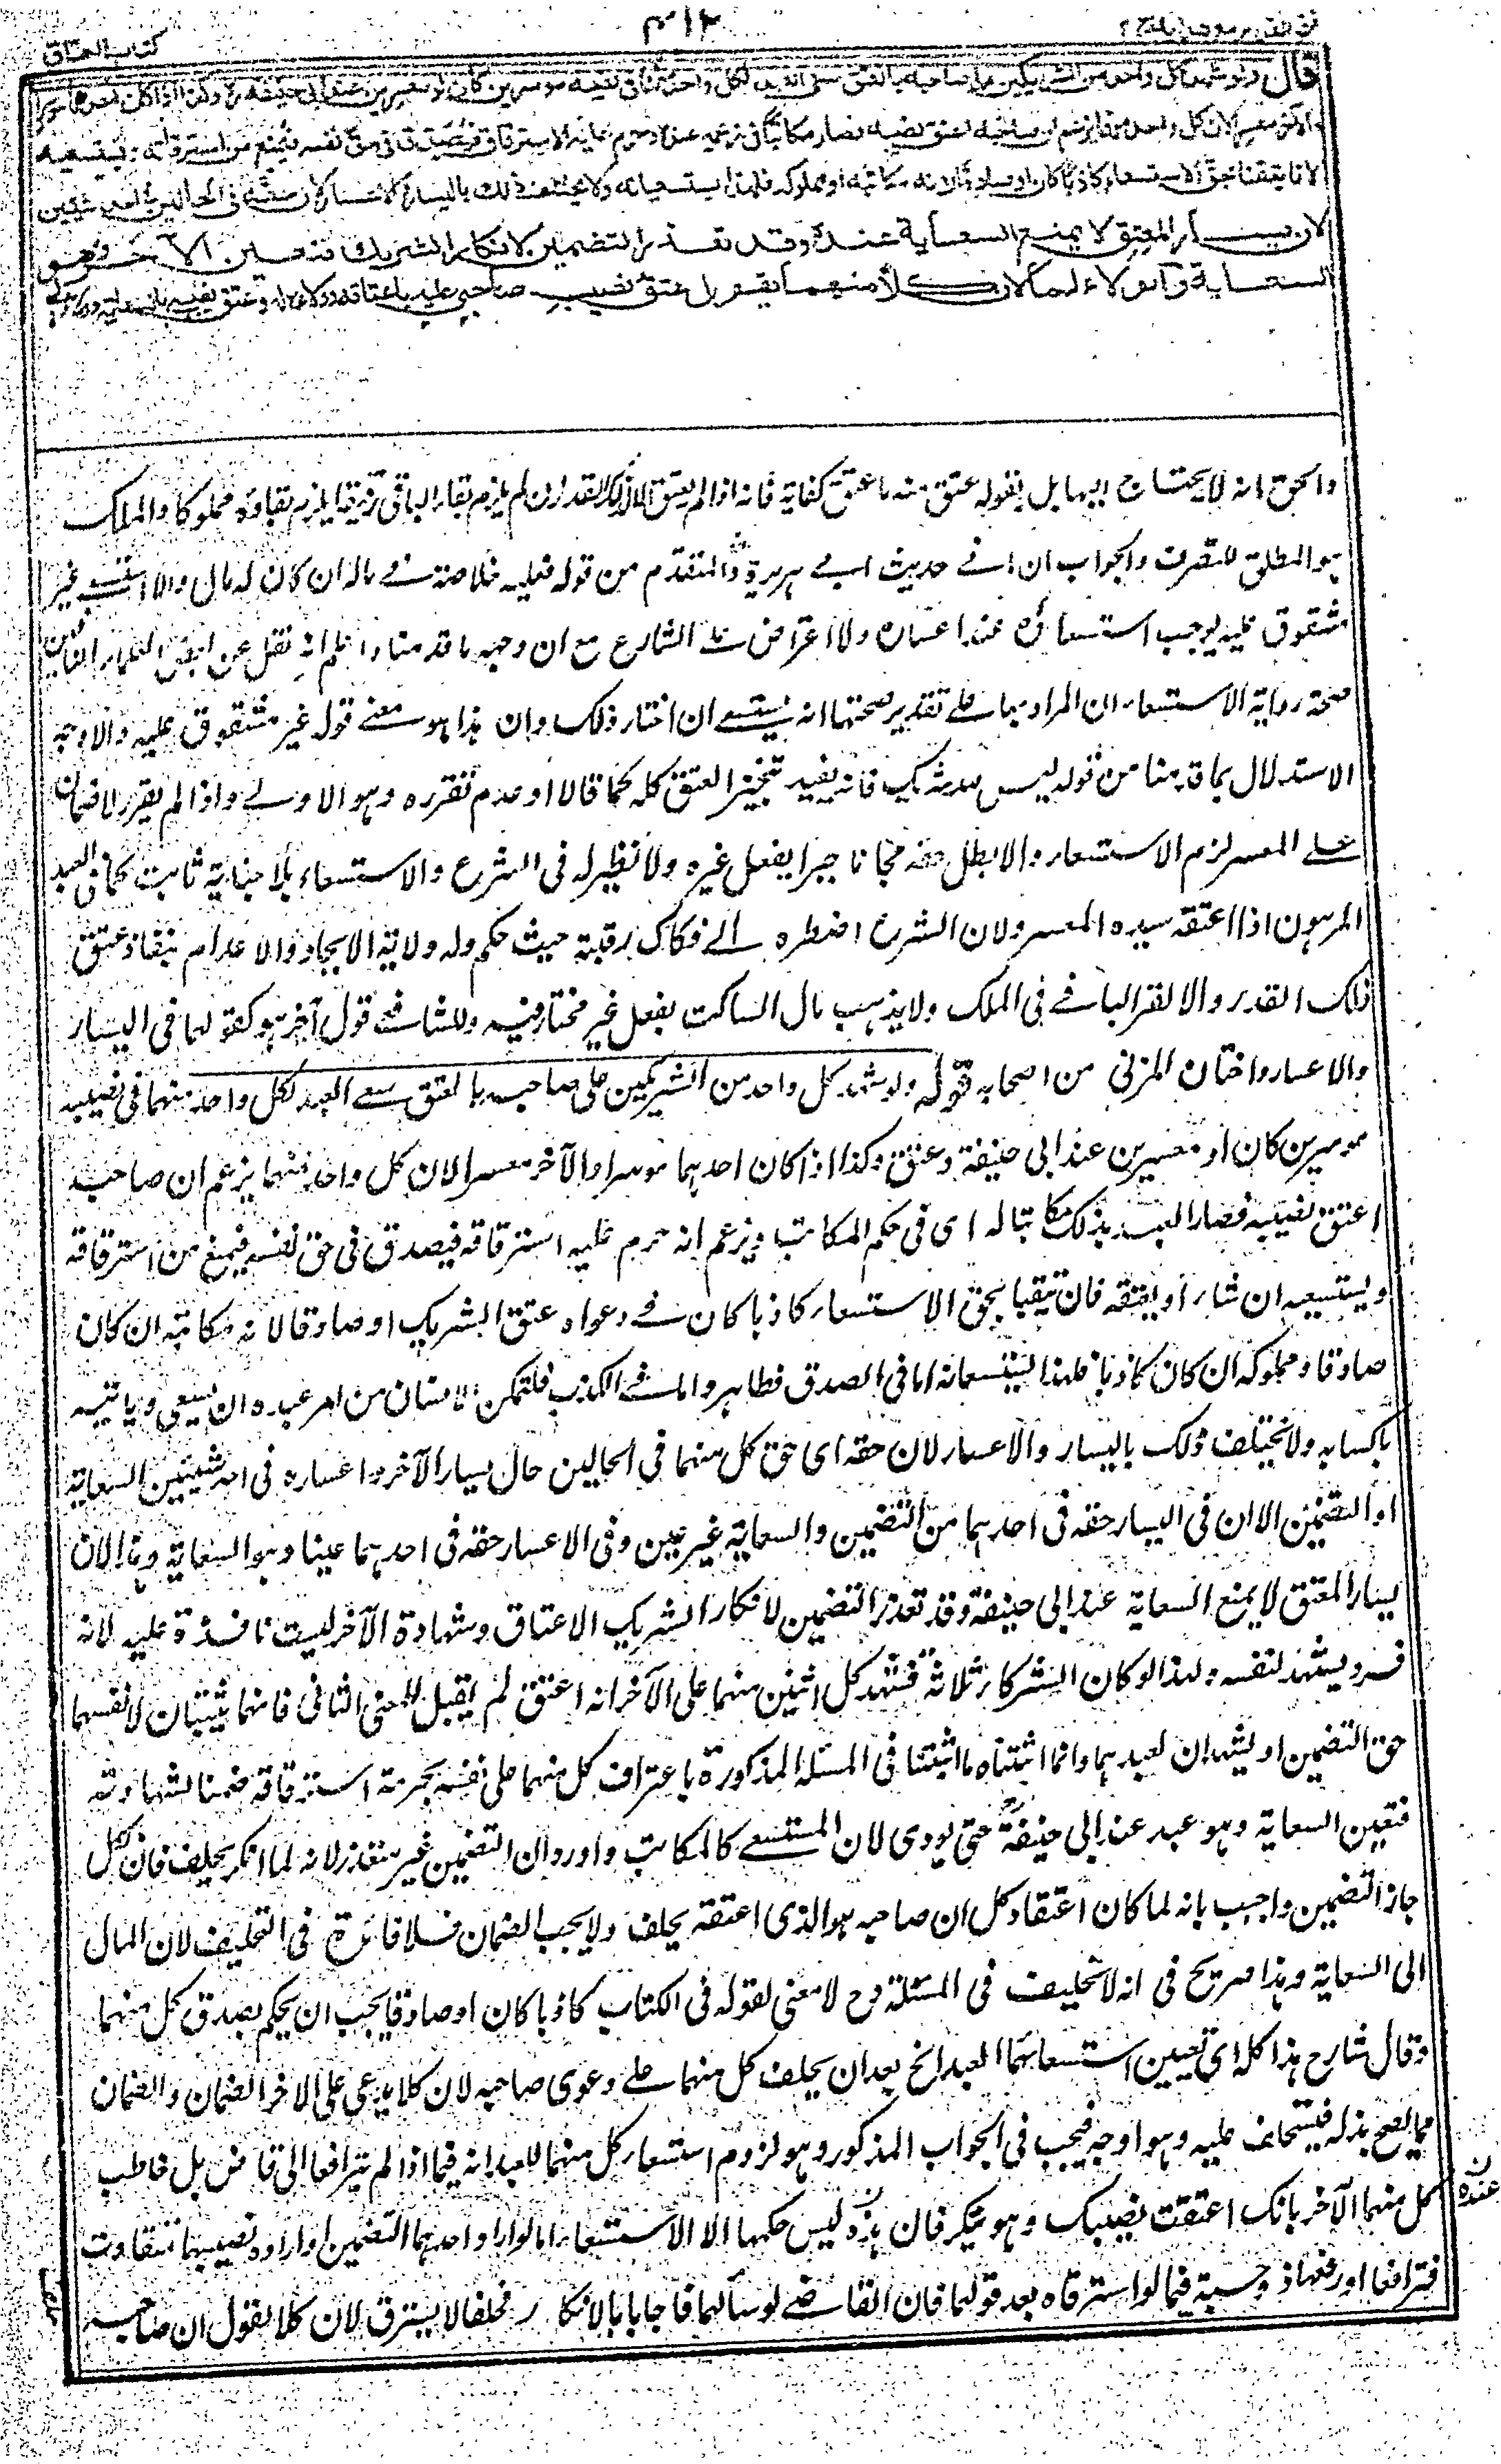 كتاب العتاق
قال ولو شهد كل واحد من الشريكين على صاحبه بالعتق سعى العبد لكل واحد منهما في نصيبه موسرين كانا او معسرين عند ابي حنيفة وكذا اذا كان احدهما موسرا
والآخر معسرا لان كل واحد منهما يزعم ان صاحبه اعتق نصيبه فصار مكاتبا في زعمه عنده وحرم عليه الاسترقاق فيصدق في حق نفسه فيمنع من استرقاقه ويستسعيه
لانا تيقنا بحق الاستسعاء كاذبا كان او صادقا لانه مكاتبه او مملوكه فلهذا يستسعيانه ولا يختلف ذلك باليسار والاعسار لان حقه في الحالين في احد شيئين
لان يسار المعتق لا يمنع السعاية عنده وقد تعذر التضمين لانكار الشريك فتعين الآخر وهو
السعاية والولاء لهما لان كلا منهما يقول عتق نصيب صاحبي عليه باعتاقه وولاؤه له وعتق نصيبي بالسعاية وولاؤه لي
والحق انه لا يحتاج اليها بل بقوله عتق منه ما عتق كفاية فانه اذا لم يعتق الا ذلك القدر وان لم يلزم بقاء الباقي رقيقا يلزم بقاؤه مملوكا والملك
هو المطلق للتصرف والجواب ان في حديث ابي هريرة المتقدم من قوله فعليه خلاصه في ماله ان كان له مال والا استسعى غير
مشقوق عليه يوجب استسعاءه عند اعساره ولا اعتراض على الشارع مع ان وجهه ما قدمنا واعلم انه نقل عن بعض العلماء القائلين
صحة رواية الاستسعاء ان المراد بها على تقدير صحتها انه يستسعى ان اختار ذلك وان هذا هو معنى قوله غير مشقوق عليه والاوجه
الاستدلال بما قدمنا من قوله ليس لله شريك فانه يفيد تنجيز العتق كله كما قالا او عدم تقرره وهو الاولى واذا لم يقرر لا ضمان
على المعسر لزم الاستسعاء والا بطل حقه مجانا جبرا بفعل غيره ولا نظير له في الشرع والاستسعاء بلا جناية ثابت كما في العبد
المرهون اذا اعتقه سيده المعسر ولان الشرع اضطره الى فكاك رقبته حيث حكم وله ولاية الايجاد والاعدام بنفاذ عتق
ذلك القدر والا لقر الباقي في الملك ولا يذهب مال الساكت بفعل غير مختار فيه وللشافعي قول آخر هو كقولهما في اليسار
والاعسار واختاره المزني من اصحابه قوله ولو شهد كل واحد من الشريكين على صاحبه بالعتق سعى العبد لكل واحد منهما في نصيبه
موسرين كانا او معسرين عند ابي حنيفة وعتق وكذا اذا كان احدهما موسرا والآخر معسرا لان كل واحد منهما يزعم ان صاحبه
اعتق نصيبه فصار العبد بذلك مكاتبا له اى في حكم المكاتب ويزعم انه حرم عليه استرقاقه فيصدق في حق نفسه فيمنع من استرقاقه
ويستسعيه ان شاء او يعتقه فان تيقنا بحق الاستسعاء كاذبا كان في دعواه عتق الشريك او صادقا لانه مكاتبه ان كان
صادقا ومملوكه ان كان كاذبا فلهذا يستسعيانه اما في الصدق فظاهر واما في الكذب فلتمكن الانسان من امر عبده ان يسعى وياتيه
باكسابه ولا يختلف ذلك باليسار والاعسار لان حقه اى حق كل منهما في الحالين حال يسار الآخر واعساره في احد شيئين السعاية
او التضمين الا ان في اليسار حقه في احدهما من التضمين والسعاية غير عين وفي الاعسار حقه في احدهما عينا وهو السعاية وهذا لان
يسار المعتق لا يمنع السعاية عند ابي حنيفة وقد تعذر التضمين لانكار الشريك الاعتاق وشهادة الآخر ليست نافذة عليه لانه
فرد يشهد لنفسه ولهذا لو كان الشركاء ثلاثة فشهد كل اثنين منهما على الآخر انه اعتق لم يقبل للمعنى الثاني فانهما يثبتان لانفسهما
حق التضمين او يشهدان لعبدهما وانما اثبتناه ما اثبتنا في المسئلة المذكورة باعتراف كل منهما على نفسه بحرمة استرقاقه ضمنا لشهادته
فتعين السعاية وهو عبد عند ابي حنيفة حتى يودى لان المستسعى كالمكاتب واورد ان التضمين غير متعذر لانه لما انكر يحلف فان نكل
جاز التضمين واجيب بانه لما كان اعتقاد كل ان صاحبه هو الذى اعتقه يحلف ولا يجب الضمان فلا فائدة في التحليف لان المال
الى السعاية وهذا صريح في انه لا تحليف في المسئلة وح لا معنى لقوله في الكتاب كاذبا كان او صادقا يجب ان يحكم بصدق كل منهما
وقال شارح هذا كله اى تعيين استسعائهما العبد الخ بعد ان يحلف كل منهما على دعوى صاحبه لان كلا يدعى على الآخر الضمان والضمان
مما يصح بذله فيستحلف عليه وهو اوجه فيجب في الجواب المذكور وهو لزوم استسعاء كل منهما للعبد انه فيما اذا لم يترافعا الى قاض بل خاطب
كل منهما الآخر بانك اعتقت نصيبك وهو ينكر فان هذه ليس حكمها الا الاستسعاء اما لو اراد احدهما التضمين او اراده نصيبهما متفاوت
عنده
فترافعا او رفعها ذو حسبة فيما لو استرقاه بعد قولهما فان القاضي لو سألهما فاجابا بالانكار فحلفا لا يسترق لان كلا يقول ان صاحبه